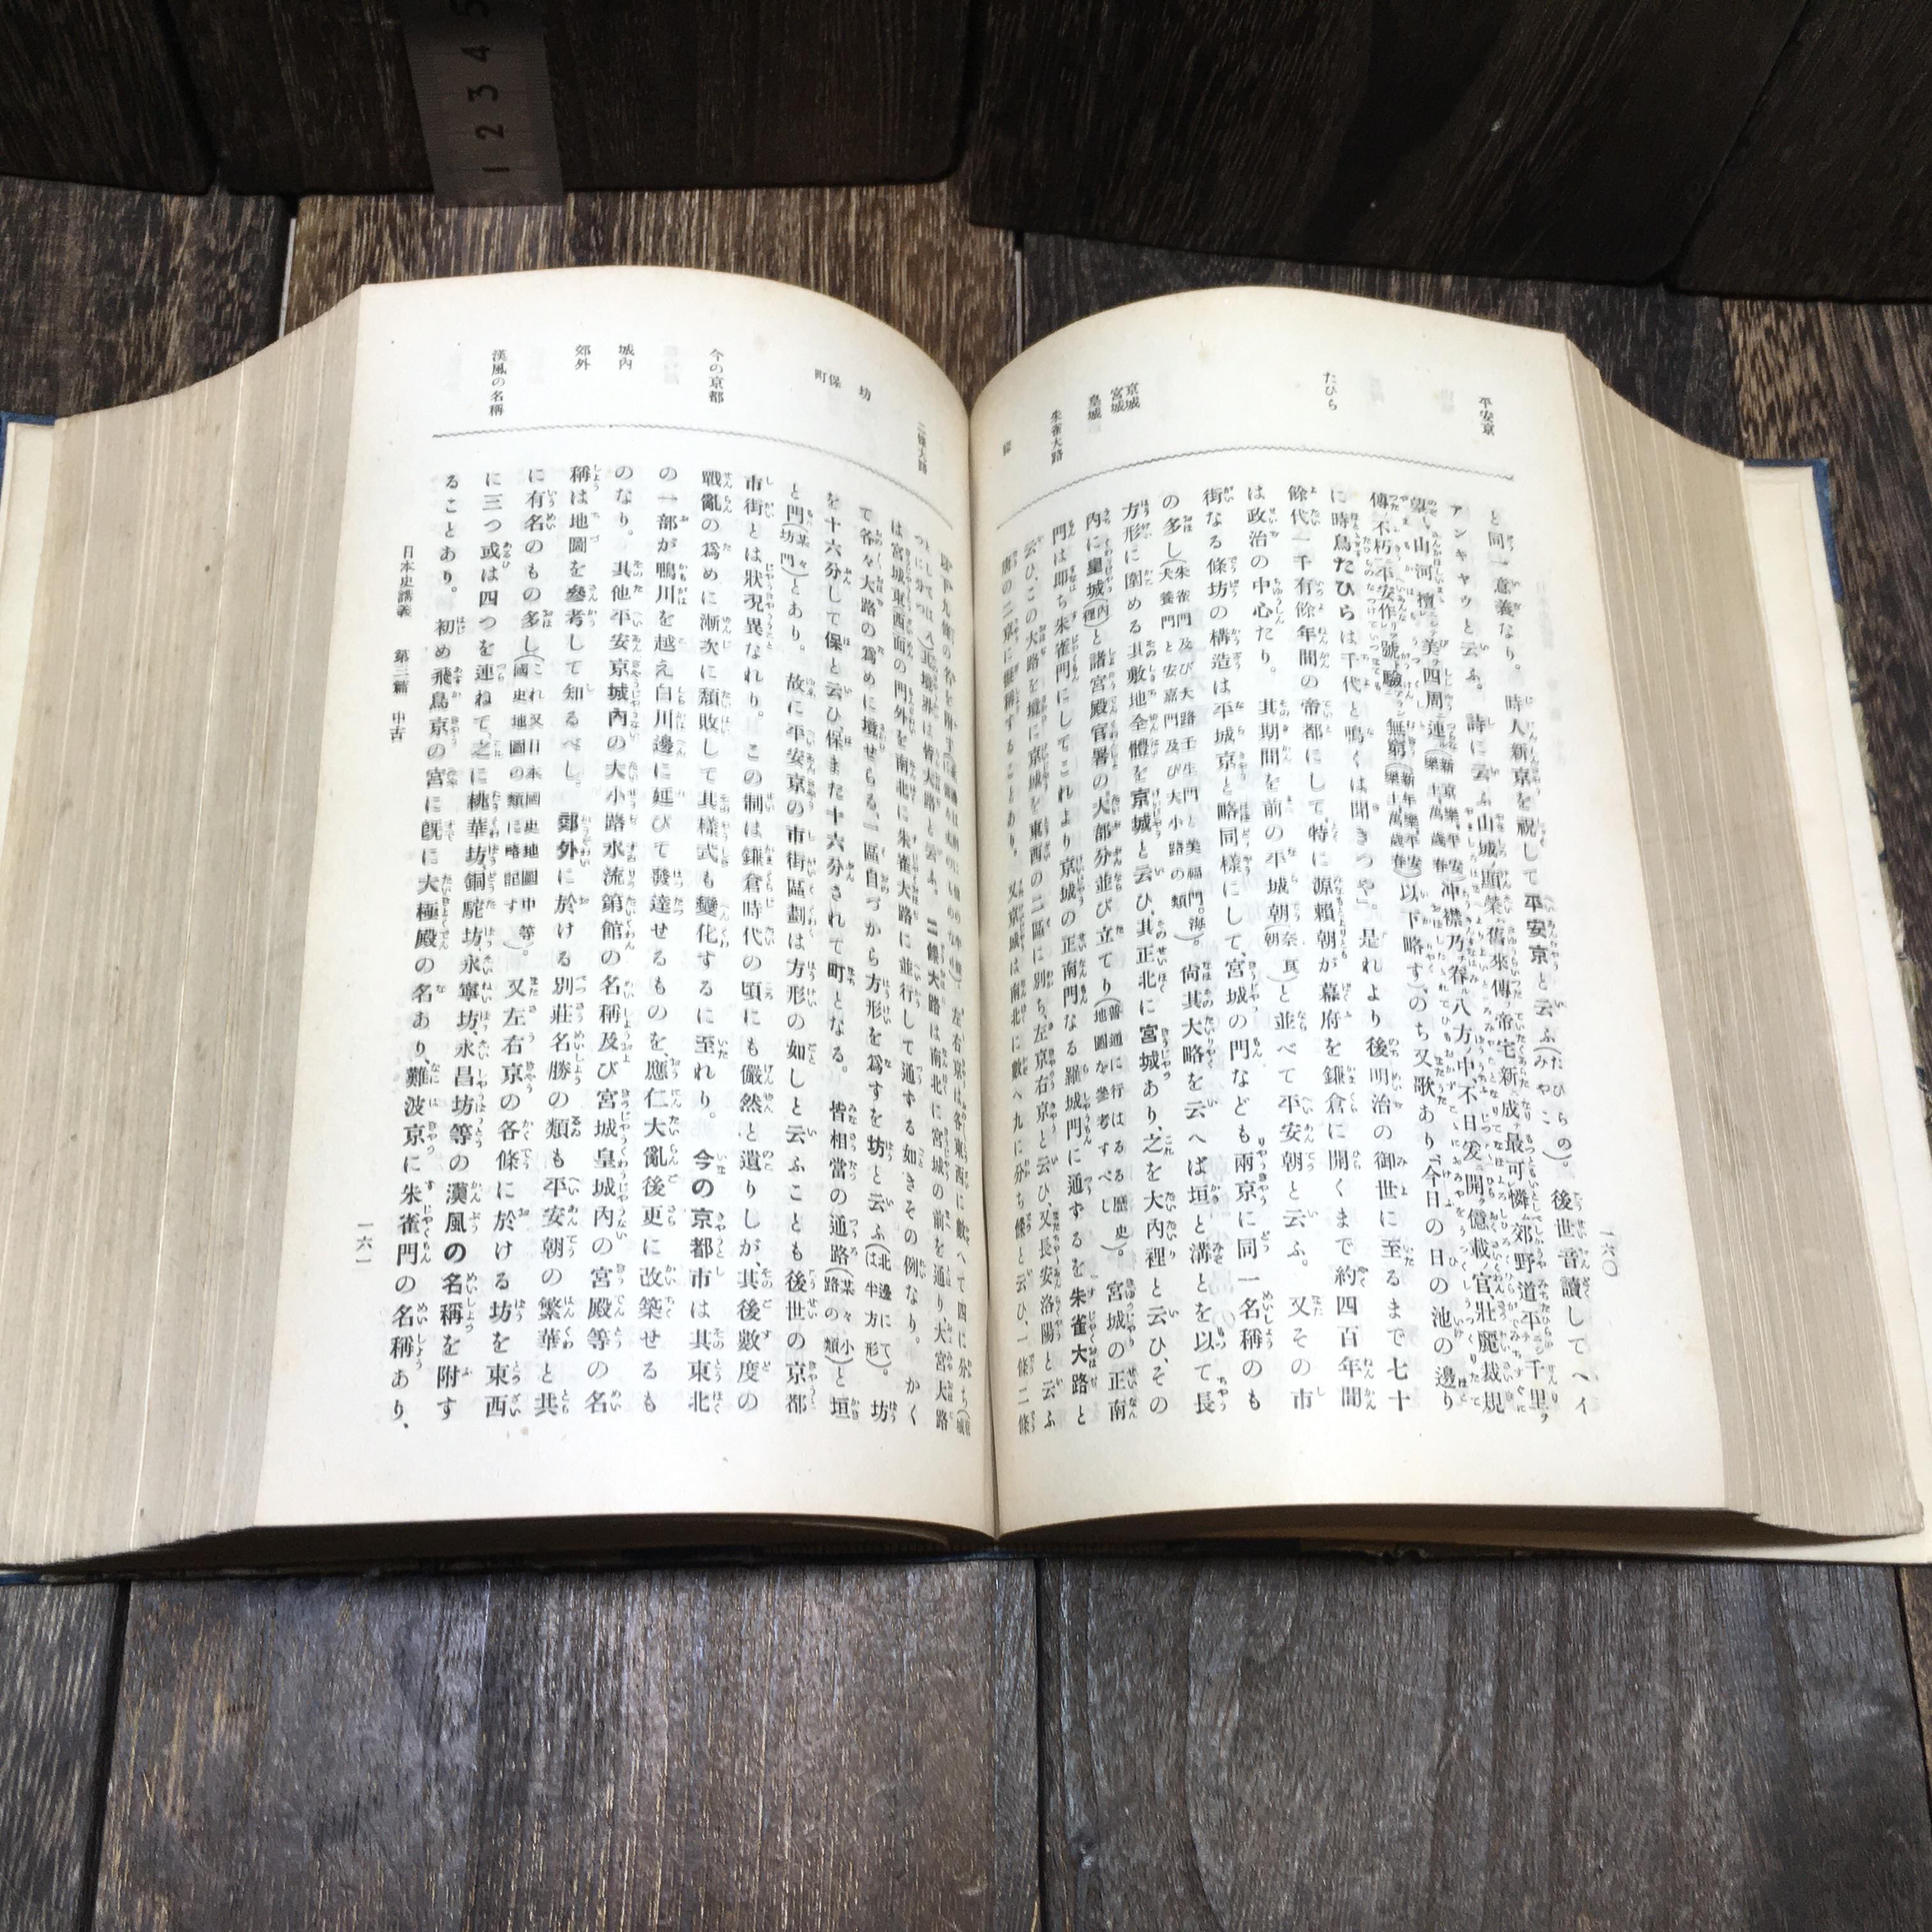 一六〇
平安京
たひら
京城
宮城
皇城
朱雀大路
條
と同一意義なり。時人新京を祝して平安京と云ふ(たひらの みやこ)。後世音讀してヘイ
アンキャウと云ふ。詩に云ふ山城顯樂舊來傳、帝宅新成最可憐、郊野道平千里
望、山河擅美四周連(新京樂、平安樂土、萬歲春)冲襟乃眷八方中、不日爰開億載宮、壯麗裁規
傳不朽、平安作號驗無窮(新年樂、平安樂土、萬歲春)以下略す、のち又歌あり、「今日の日の池の邊り
に時鳥たひらは千代と鳴くは聞きつや」。是れより後明治の御世に至るまで七十
餘代一千有餘年間の帝都にして特に源賴朝が幕府を鎌倉に開くまで約四百年間
は政治の中心たり。其期間を前の平城朝(奈良朝)と並べて平安朝と云ふ。又その市
街なる條坊の構造は平城京と略同樣にして、宮城の門なども兩京に同一名稱のも
の多し(朱雀門及び大路壬生門と美福門。海犬養門と安嘉門及び大小路の類)。尙其大略を云へば垣と溝とを以て長
方形に圍める其敷地全體を京城と云ひ、其正北に宮城あり、之を大內裡と云ひ、その
內に皇城(內裡)と諸宮殿官署の大部分並び立てり(普通に行はるる歷史地圖を參考すべし)。宮城の正南
門は即ち朱雀門にしてこれより京城の正南門なる羅城門に通ずるを朱雀大路と
云ひ、この大路を境に京城を東西の二區に別ち、左京右京と云ひ、又長安洛陽と云ふ
唐の二京に擬稱することあり。又京城は南北に數へ九に分ち條と云ひ、一條二條
二條大路
坊
保
町
今の京都
城內
郊外
漢風の名稱
左右京は各東西に數へて四に分ち
は宮城東西面の門外を南北に朱雀大路に並行して通ずる如きその例なり。かく
て各々大路の爲めに境せらる、一區自づから方形を爲すを坊と云ふ(北邊にては半方形)。坊
を十六分して保と云ひ、保また十六分されて町となる。皆相當の通路(某々小路の類)と垣
と門(某々坊門)とあり。故に平安京の市街區劃は方形の如しと云ふことも後世の京都
市街とは狀況異なれり。この制は鎌倉時代の頃にも儼然と遺りしが、其後數度の
戰亂の爲めに漸次に頽敗して其樣式も變化するに至れり。今の京都市は其東北
の一部が鴨川を越え白川邊に延びて發達せるものを、應仁大亂後更に改築せるも
のなり。其他平安京城內の大小路水流第館の名稱及び宮城皇城內の宮殿等の名
稱は地圖を參考して知るべし。郊外に於ける別莊名勝の類も平安朝の繁華と共
に有名のもの多し(これ又日本國史地圖中等國史地圖の類に略記す)。又左右京の各條に於ける坊を東西
に三つ或は四つを連ねて、之に桃華坊、銅駝坊、永寧坊、永昌坊等の漢風の名稱を附す
ることあり。初め飛鳥京の宮に旣に大極殿の名あり、難波京に朱雀門の名稱あり、
日本史講義 第三篇 中古
一六一